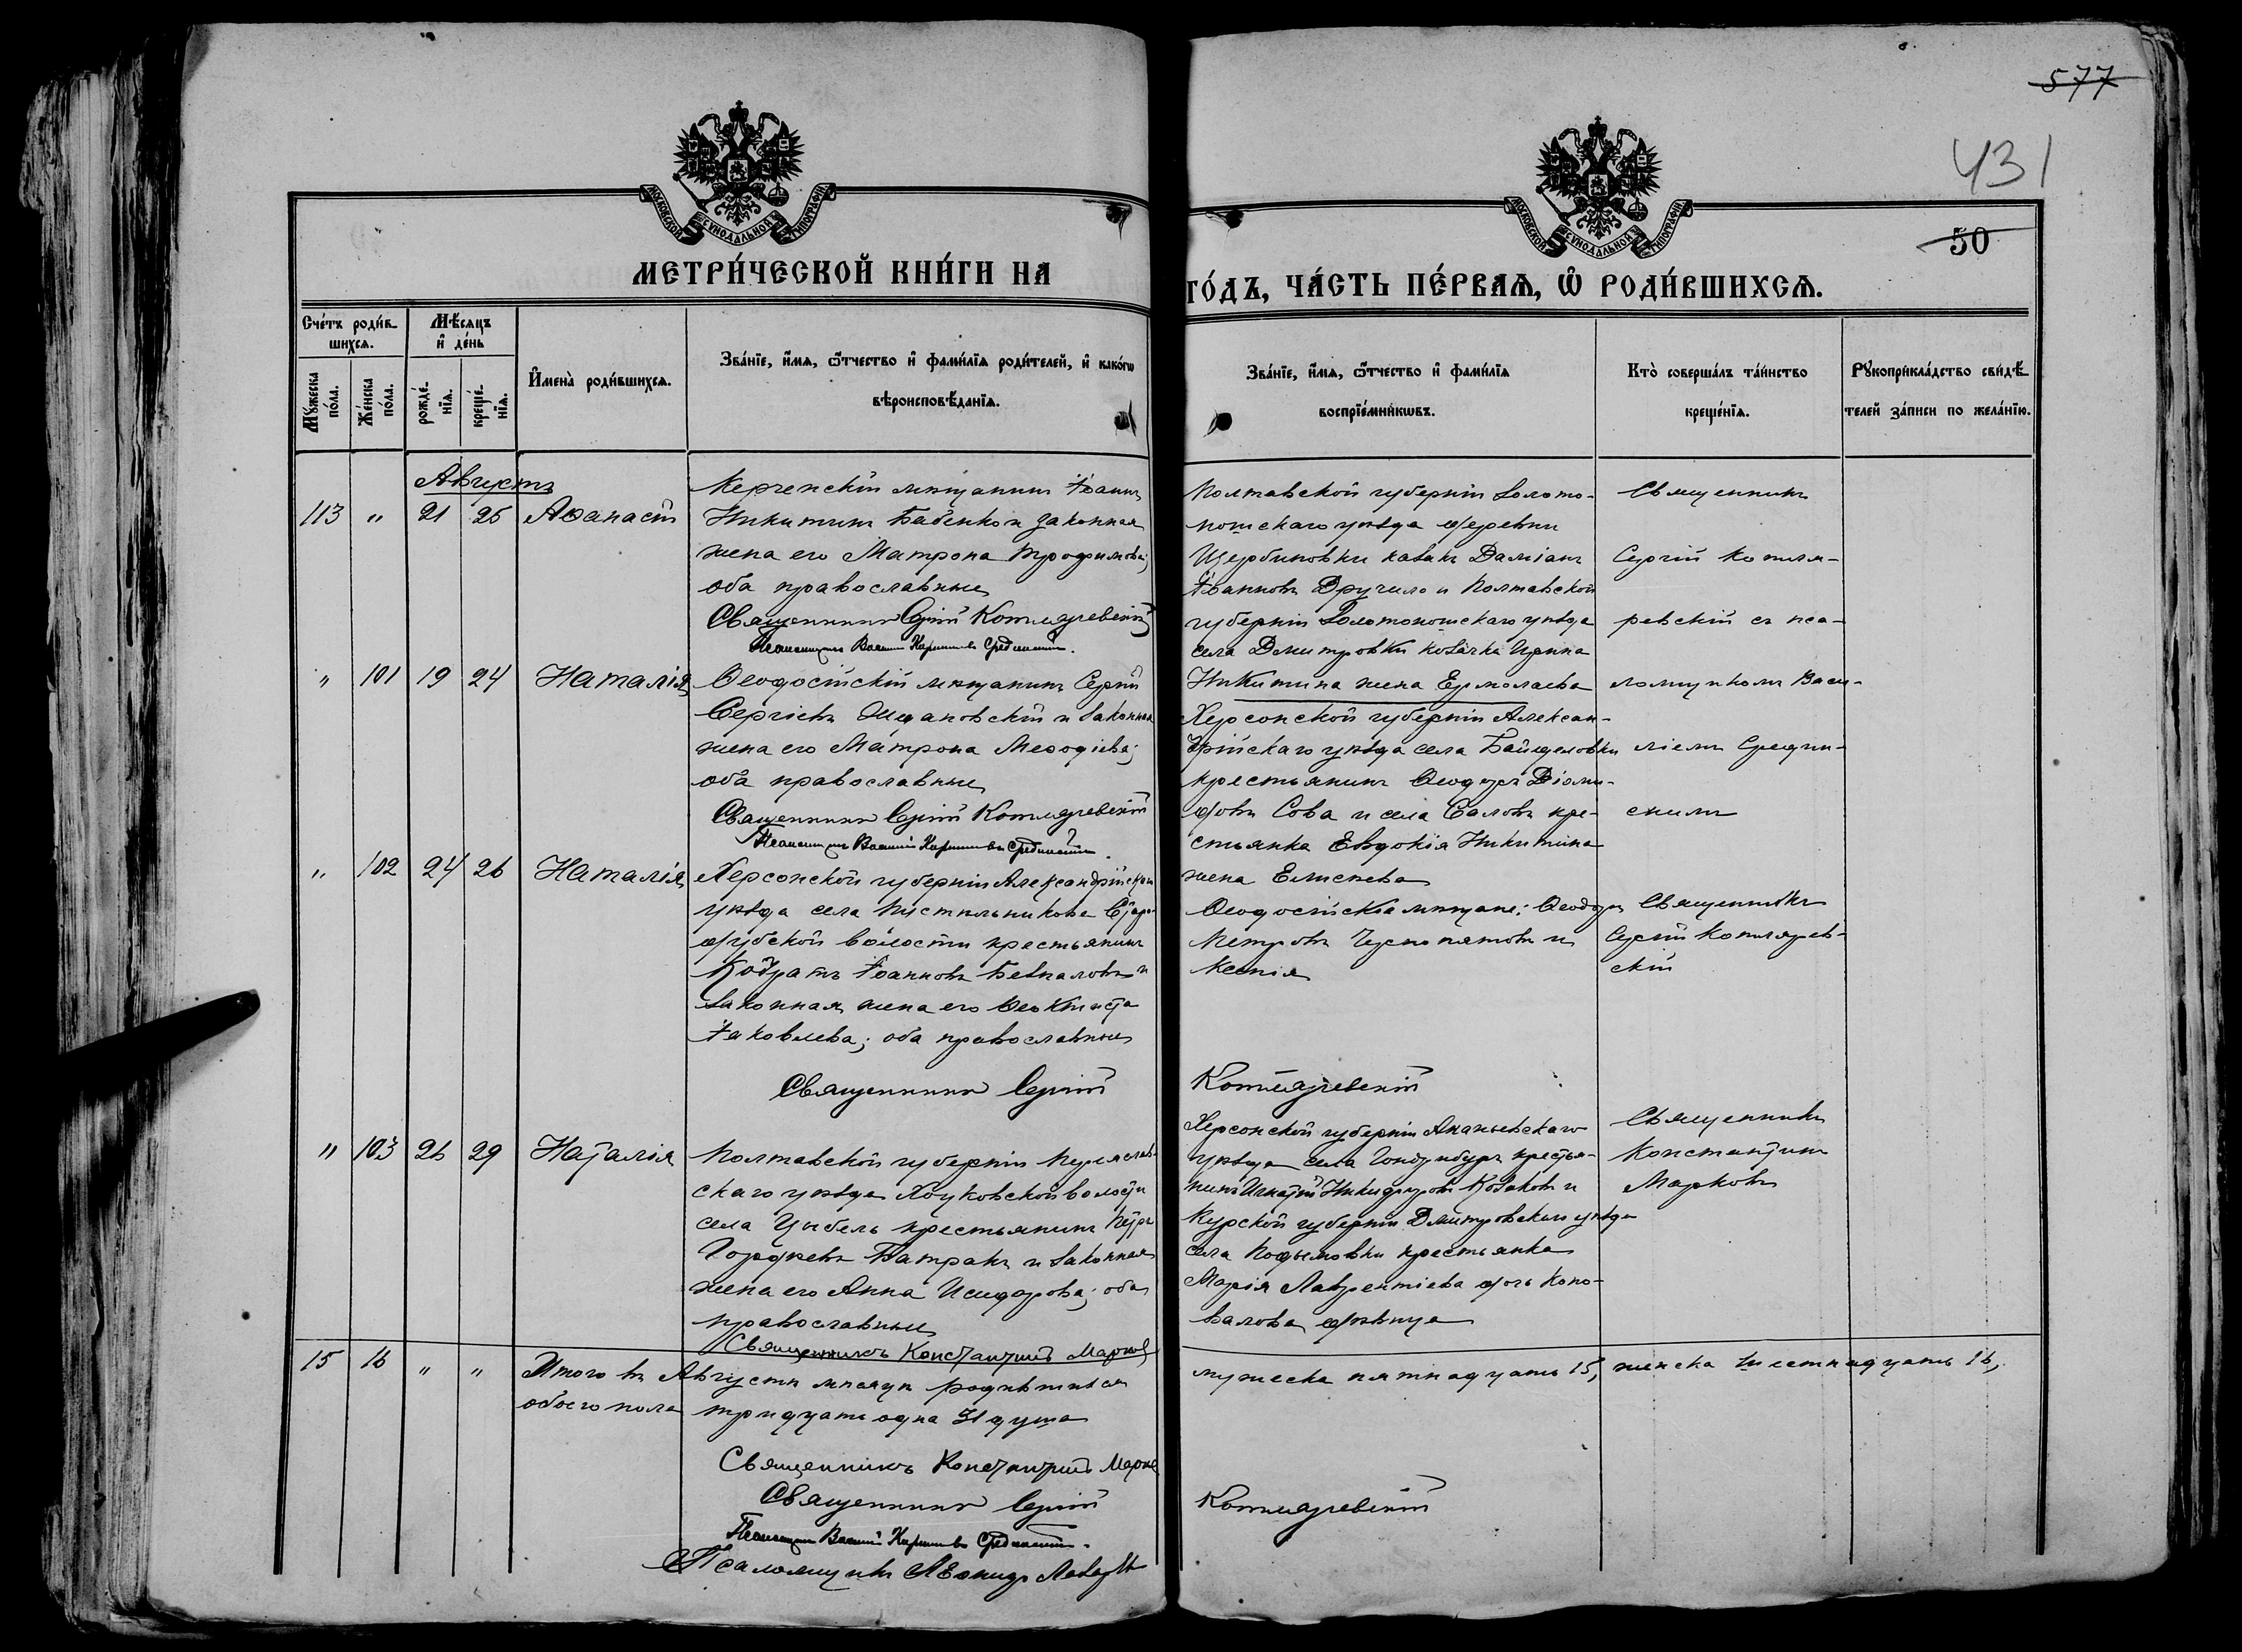 577
431
50
МОСКОВСКОЙ СУНОДАЛЬНОЙ ТИПОГРАФІИ
МОСКОВСКОЙ СУНОДАЛЬНОЙ ТИПОГРАФІИ
МЕТРИ́ЧЕСКОЙ КНИ́ГИ НА
ГО́ДЪ, ЧА́СТЬ ПЕ́РВАѦ, Ѡ҆ РОДИ́ВШИХСѦ.
Сче́тъ роди́в-
шихсѧ.
Мѣ́сѧцъ
и҆ де́нь
Мꙋ́жеска
по́ла.
Же́нска
по́ла.
рожде́-
нїѧ.
креще́-
нїѧ.
И҆мена̀ роди́вшихсѧ.
Зва́нїе, и҆́мѧ, ѻ҆́тчество и҆ фами́лїѧ роди́телей, и҆ како́гѡ
вѣроисповѣ́данїѧ.
Зва́нїе, и҆́мѧ, ѻ҆́тчество и҆ фами́лїѧ
воспрїе́мникѡвъ.
Кто̀ соверша́лъ та́инство
креще́нїѧ.
Рꙋкоприкла́дство свидѣ́-
телей за́писи по жела́нїю.
Августъ
113 " 21 25 Аѳанасій
Керченскій мѣщанинъ Іоаннъ
Никитинъ Бабенко и законная
жена его Матрона Трофимова;
оба православные
Священникъ Сергій Котляревскій
Псаломщикъ Василій Срединскій.
Полтавской губерніи Золото-
ношскаго уѣзда деревни
Щербиновки казакъ Даміанъ
Іоанновъ Дручило и Полтавской
губерніи Золотоношскаго уѣзда
села Дмитровки козачка Ирина
Никитина жена Ермолаева
Священникъ
Сергій Котля-
ревскій съ пса-
ломщикомъ Васи-
ліемъ Средин-
скимъ
" 101 19 24 Наталія
Ѳеодосійскій мѣщанинъ Сергій
Сергіевъ и законная
жена его Матрона Меѳодіева;
оба православные
Священникъ Сергій Котляревскій
Псаломщикъ Василій Срединскій.
Херсонской губерніи Алексан-
дрійскаго уѣзда села
крестьянинъ Ѳеодоръ Діоми-
довъ Сова и села кре-
стьянка Евдокія Никитина
жена Елисѣева
" 102 24 26 Наталія
Херсонской губерніи Александрійскаго
уѣзда села
волости крестьянинъ
Кодратъ Іоанновъ и
законная жена его Ѳеоктиста
Іаковлева; оба православные
Священникъ Сергій
Котляревскій
Ѳеодосійскіе мѣщане: Ѳеодоръ
Петровъ и
Ксенія
Священникъ
Сергій Котлярев-
скій
" 103 26 29 Наталія
Полтавской губерніи Переяслав-
скаго уѣзда Хоцковской волости
села Цыбель крестьянинъ Петръ
Гордѣевъ Батракъ и законная
жена его Анна Исидорова; оба
православные
Священникъ Константинъ Марковъ
Херсонской губерніи Ананьевскаго
уѣзда села крестья-
нинъ Игнатій Никифоровъ Козаковъ и
Курской губерніи Дмитровскаго уѣзда
села крестьянка
Марія Лаврентіева дочь Коно-
валова дѣвица
Священникъ
Константинъ
Марковъ
15 16 " " Итого въ Августѣ мѣсяцѣ родившихся
мужеска пятнадцать 15, женска шестнадцать 16,
обоего пола тридцать одна 31 душа
Священникъ Константинъ Марковъ
Священникъ Сергій
Котляревскій
Псаломщикъ Василій Срединскій.
Псаломщикъ